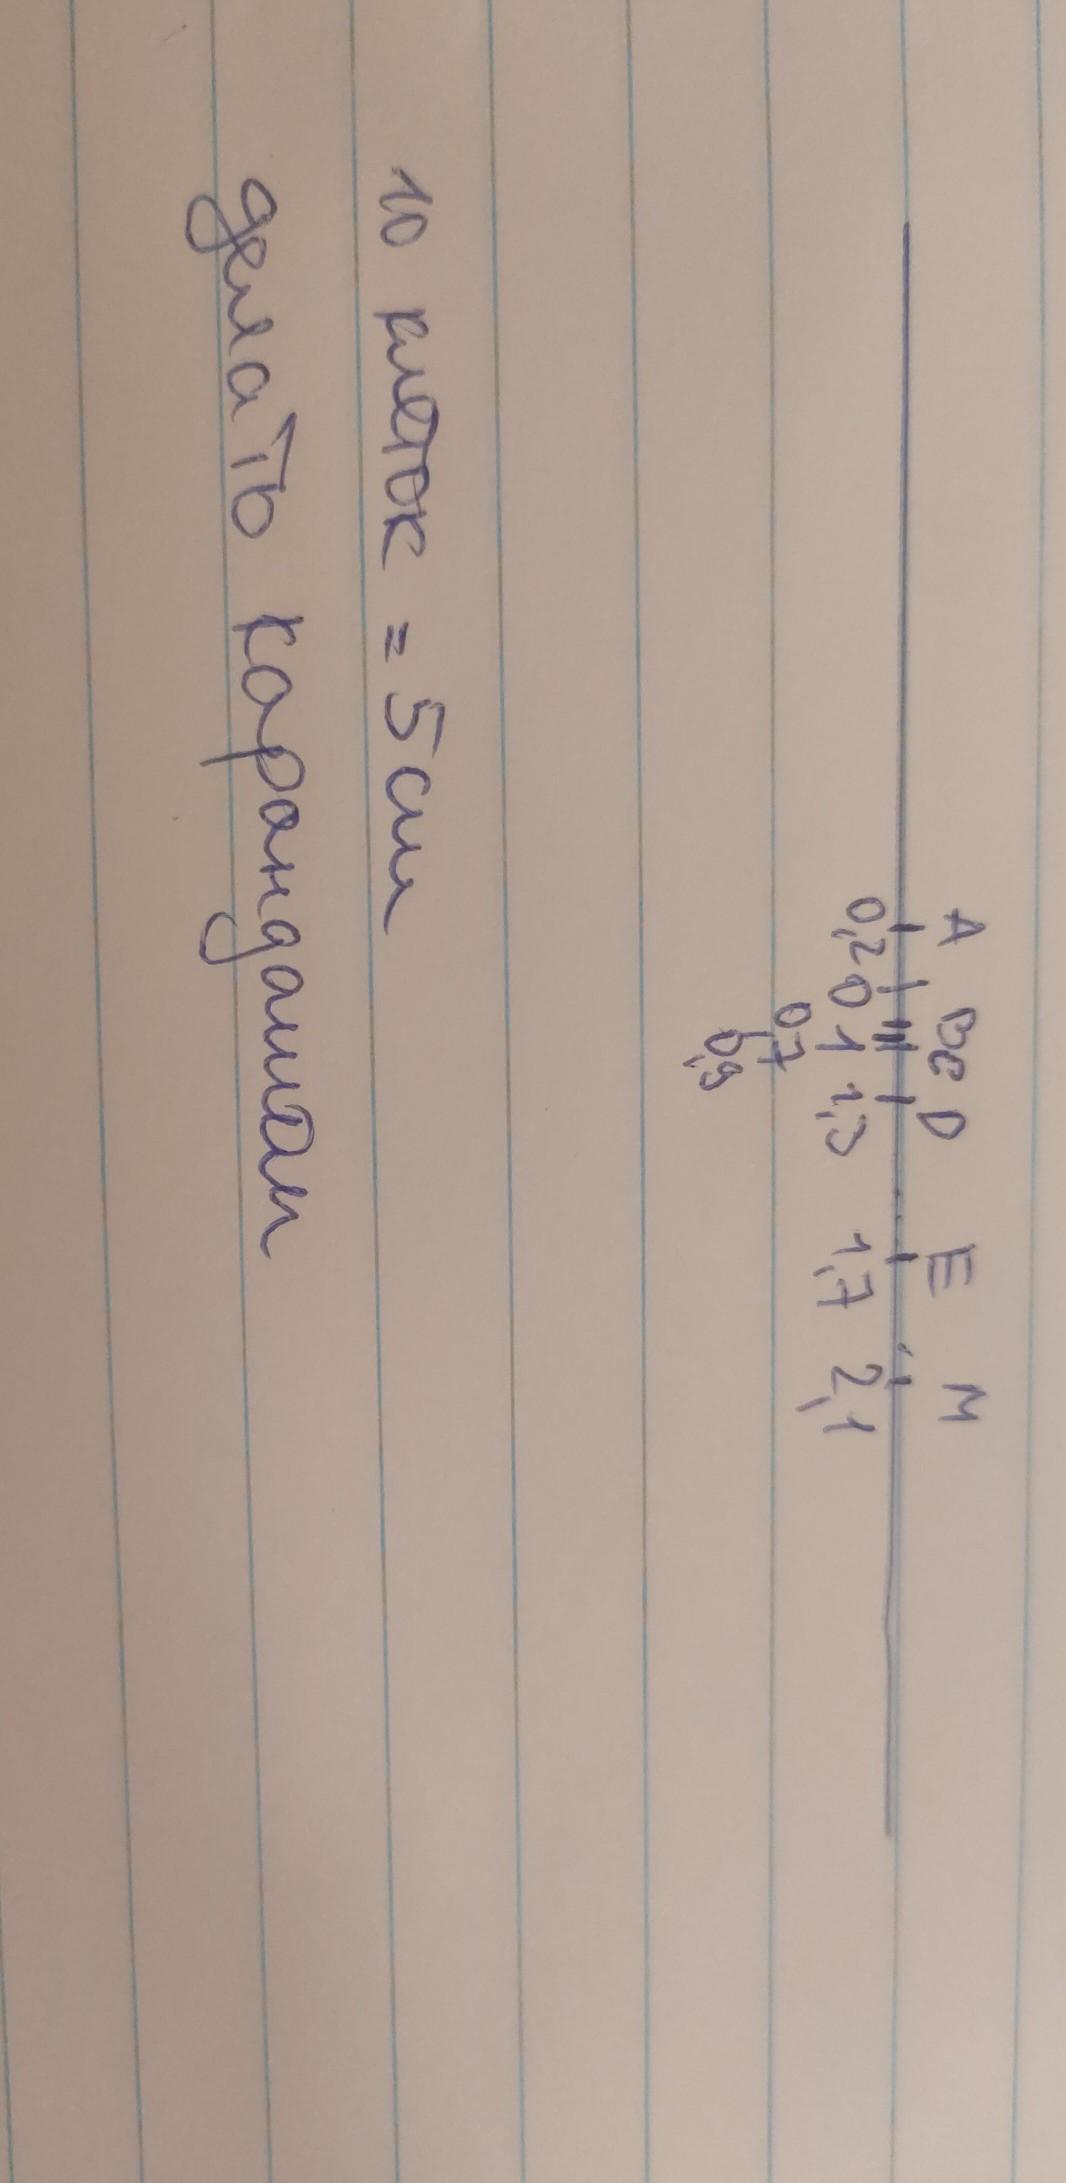 A B C D E M
0,2 0 1 1,3 1,7 2,1
0,7
0,9
10 клеток = 5 см
делать карандашом